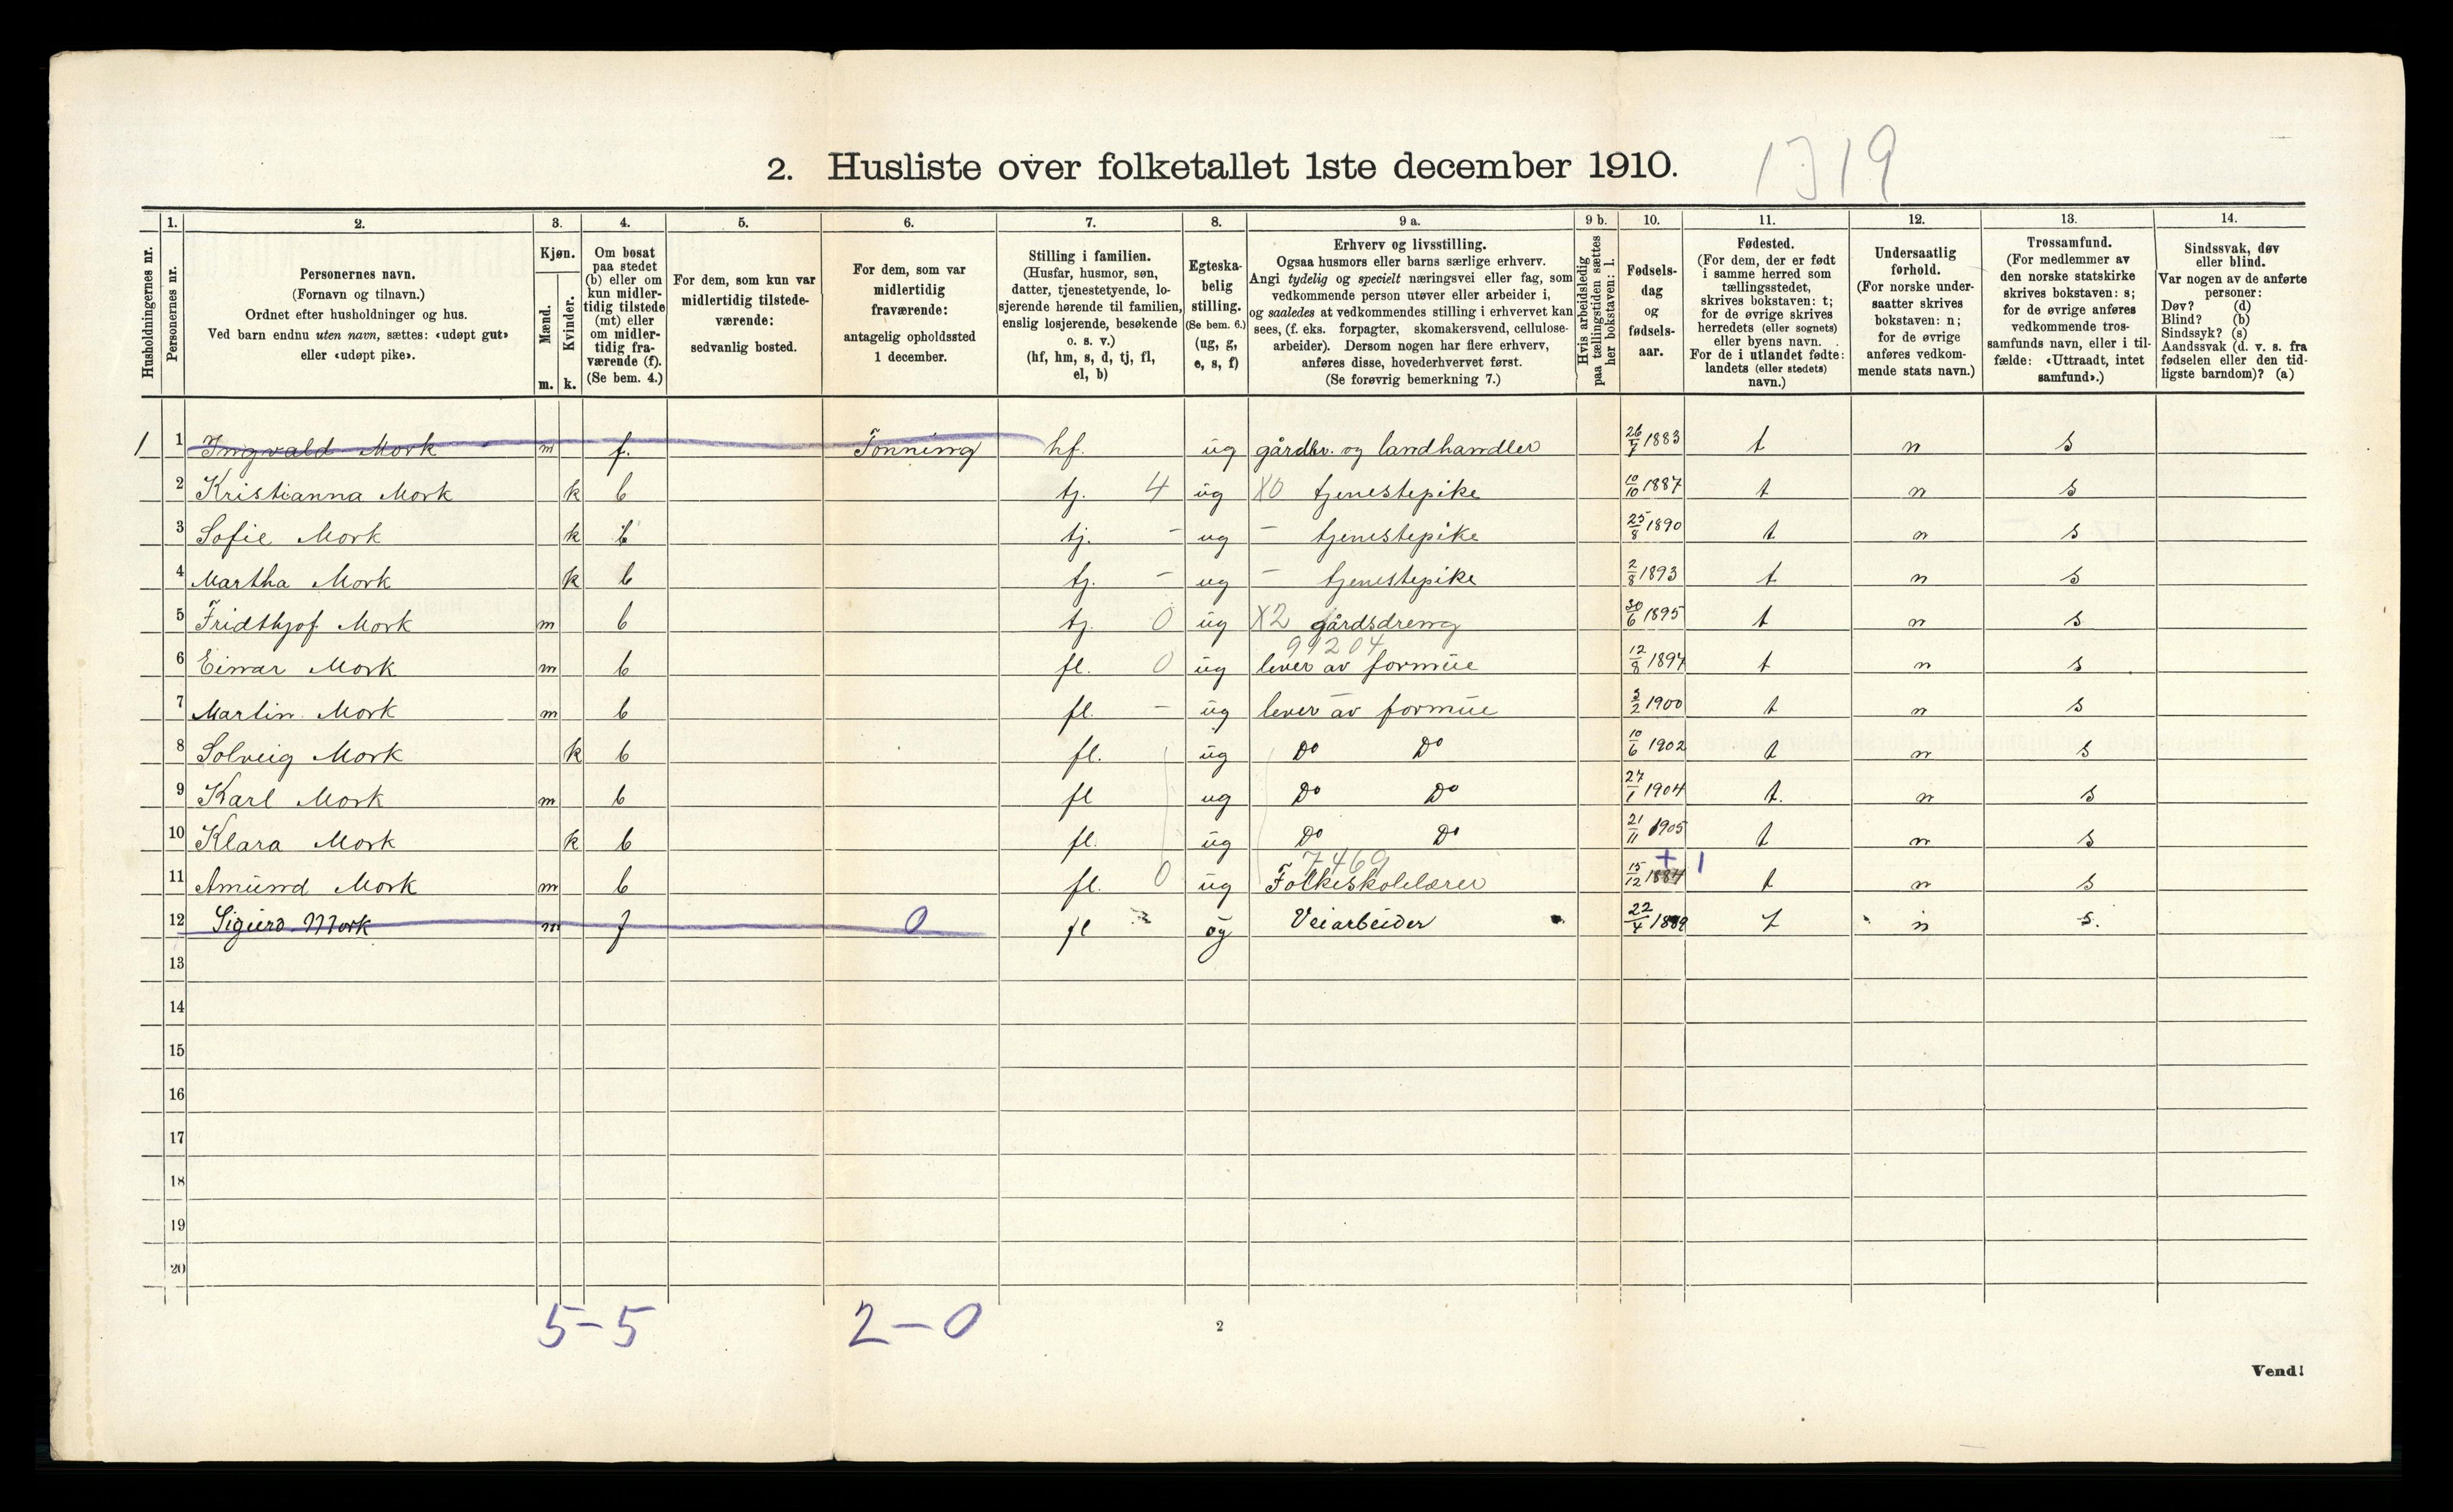 2. Husliste over folketallet 1ste december 1910.
1319
Husholdningernes nr.
1.
Personernes nr.
2.
Personernes navn.
(Fornavn og tilnavn.)
Ordnet efter husholdninger og hus.
Ved barn endnu uten navn, sættes: «udøpt gut»
eller «udøpt pike».
3.
Kjøn.
Mænd.
Kvinder.
m. k.
4.
Om bosat
paa stedet
(b) eller om
kun midler-
tidig tilstede
(mt) eller
om midler-
tidig fra-
værende (f).
(Se bem. 4.)
5.
For dem, som kun var
midlertidig tilstede-
værende:
sedvanlig bosted.
6.
For dem, som var
midlertidig
fraværende:
antagelig opholdssted
1 december.
7.
Stilling i familien.
(Husfar, husmor, søn,
datter, tjenestetyende, lo-
sjerende hørende til familien,
enslig losjerende, besøkende
o. s. v.)
(hf, hm, s, d, tj, fl,
el, b)
8.
Egteska-
belig
stilling.
(Se bem. 6.)
(ug, g,
e, s, f)
9 a.
Erhverv og livsstilling.
Ogsaa husmors eller barns særlige erhverv.
Angi tydelig og specielt næringsvei eller fag, som
vedkommende person utøver eller arbeider i,
og saaledes at vedkommendes stilling i erhvervet kan
sees, (f. eks. forpagter, skomakersvend, cellulose-
arbeider). Dersom nogen har flere erhverv,
anføres disse, hovederhvervet først.
(Se forøvrig bemerkning 7.)
9 b.
Hvis arbeidsledig
paa tællingstiden sættes
her bokstaven: l.
10.
Fødsels-
dag
og
fødsels-
aar.
11.
Fødested.
(For dem, der er født
i samme herred som
tællingsstedet,
skrives bokstaven: t;
for de øvrige skrives
herredets (eller sognets)
eller byens navn.
For de i utlandet fødte:
landets (eller stedets)
navn.)
12.
Undersaatlig
forhold.
(For norske under-
saatter skrives
bokstaven: n;
for de øvrige
anføres vedkom-
mende stats navn.)
13.
Trossamfund.
(For medlemmer av
den norske statskirke
skrives bokstaven: s;
for de øvrige anføres
vedkommende tros-
samfunds navn, eller i til-
fælde: «Uttraadt, intet
samfund».)
14.
Sindssvak, døv
eller blind.
Var nogen av de anførte
personer:
Døv? (d)
Blind? (b)
Sindssyk? (s)
Aandssvak (d. v. s. fra
fødselen eller den tid-
ligste barndom)? (a)
1 1 Ingvald Mork m f. Tonning hf. ug gårdbr. og landhandler 26/7 1883 t n s
2 Kristianna Mork k b tj. 4 ug X0 tjenestepike 10/10 1887 t n s
3 Sofie Mork k b tj. - ug - tjenestepike 25/8 1890 t n s
4 Martha Mork k b tj. - ug - tjenestepike 2/8 1893 t n s
5 Fridthjof Mork m b tj. 0 ug X2 gårdsdreng 30/6 1895 t n s
91204
6 Einar Mork m b fl. 0 ug lever av formue 12/8 1897 t n s
7 Martin Mork m b fl. - ug lever av formue 3/2 1900 t n s
8 Solveig Mork k b fl. ug Do Do 10/6 1902 t n s
9 Karl Mork m b fl ug Do Do 27/1 1904 t. n s
10 Klara Mork k b fl. ug Do Do 21/11 1905 t n s
7469 + 1
11 Amund Mork m b fl. 0 ug Folkeskolelærer 15/12 1884 t n s
12 Sigurd Mork m f 0 fl ug Veiarbeider 22/4 1889 t n s.
13
14
15
16
17
18
19
20
5-5 2-0
2
Vend!